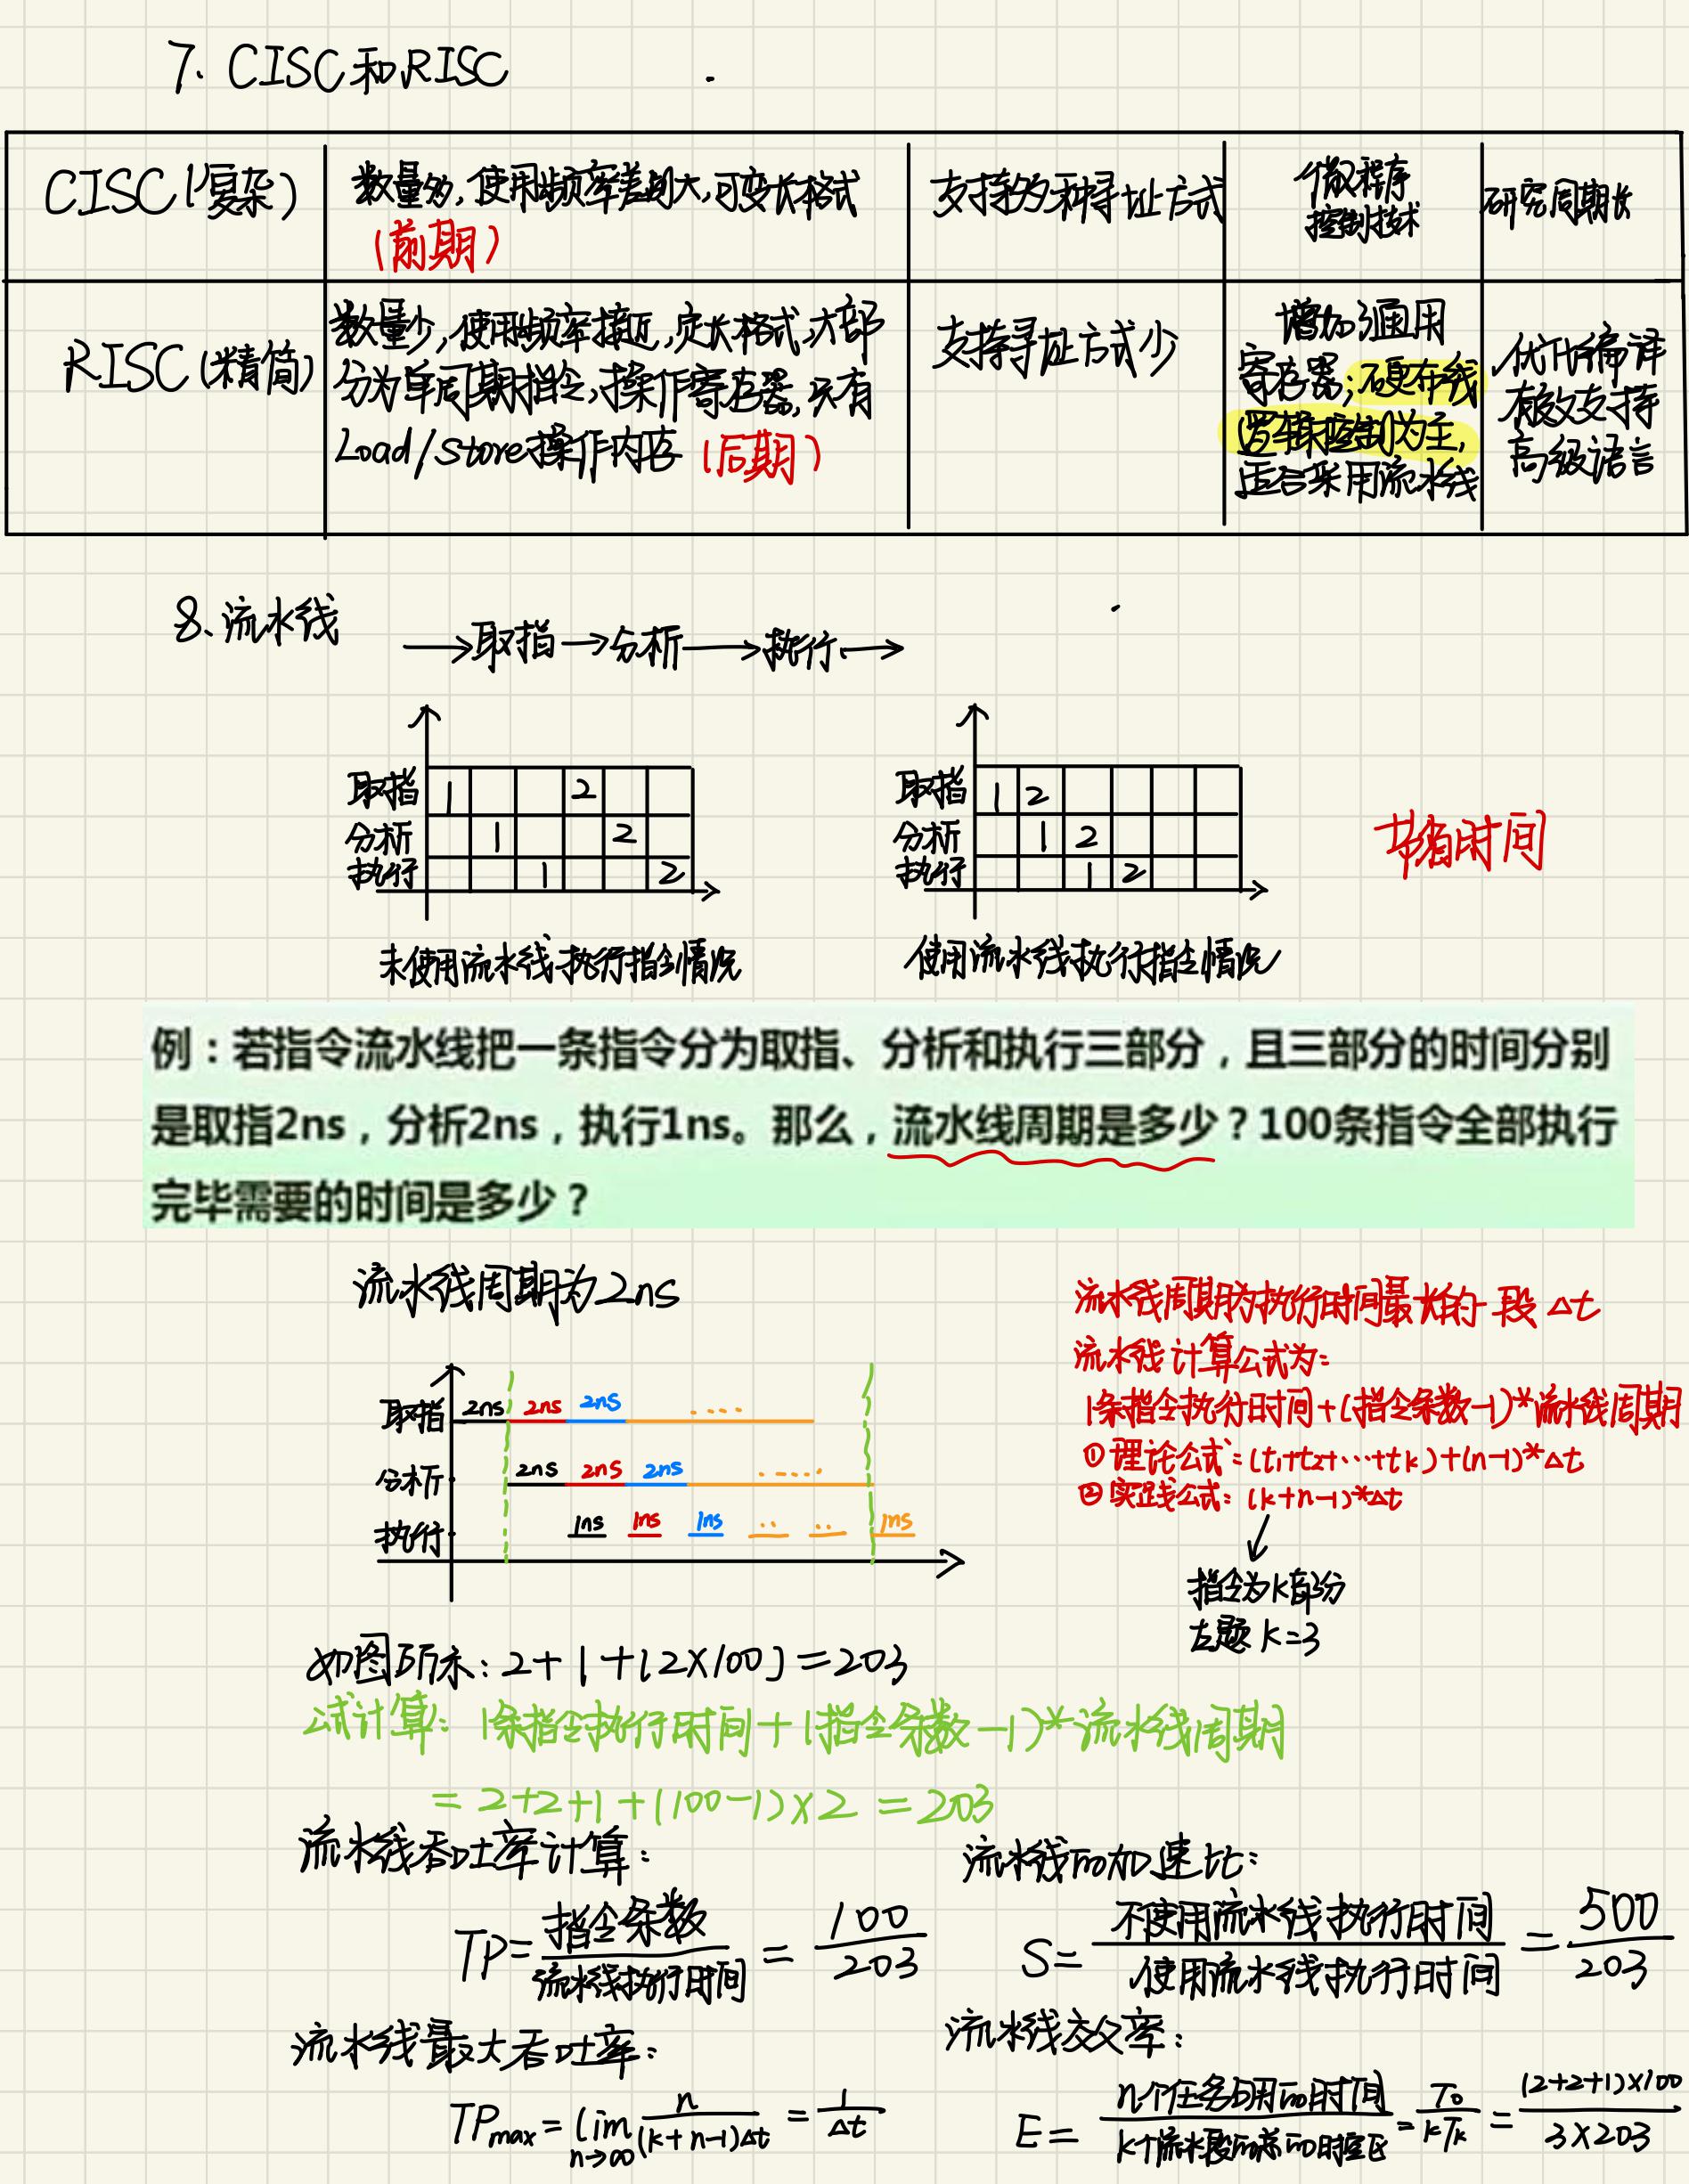 7. CISC和RISC
CISC(复杂)
数量多,使用频率差别大,可变长格式
(前期)
支持多种寻址方式
微程序
控制技术
研究周期长
RISC(精简)
数量少,使用频率接近,定长格式,大部
分为单周期指令,操作寄存器,只有
Load/Store操作内存 (后期)
支持寻址方式少
增加了通用
寄存器;硬布线
逻辑控制为主,
适合采用流水线
优化编译
有效支持
高级语言
8.流水线
→取指→分析→执行→
取指 1 2
分析 1 2
执行 1 2
未使用流水线执行指令情况
取指 1 2
分析 1 2
执行 1 2
使用流水线执行指令情况
节省时间
例:若指令流水线把一条指令分为取指、分析和执行三部分,且三部分的时间分别
是取指2ns,分析2ns,执行1ns。那么,流水线周期是多少?100条指令全部执行
完毕需要的时间是多少?
流水线周期为2ns
取指 2ns 2ns 2ns ....
分析 2ns 2ns 2ns .....
执行 1ns 1ns 1ns .. .. 1ns
流水线周期为执行时间最长的一段 △t
流水线计算公式为:
1条指令执行时间+(指令条数-1)*流水线周期
①理论公式:(t1+t2+...+tk)+(n-1)*△t
②实践公式:(k+n-1)*△t
指令为k部分
左题 k=3
如图所示:2+1+(2×100)=203
公式计算:1条指令执行时间+(指令条数-1)*流水线周期
=2+2+1+(100-1)×2=203
流水线吞吐率计算:
TP=指令条数/流水线执行时间=100/203
流水线的加速比:
S=不使用流水线执行时间/使用流水线执行时间=500/203
流水线最大吞吐率:
TPmax=lim n→∞ n/(k+n-1)△t=1/△t
流水线效率:
E=n个任务占用的时间/k个流水段的总的时空区=T0/kTk=(2+2+1)×100/3×203